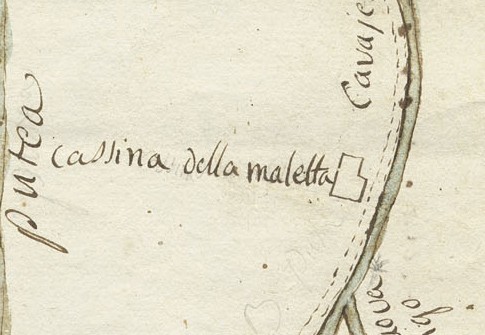 Putea
cassina della maletta
Cavaje